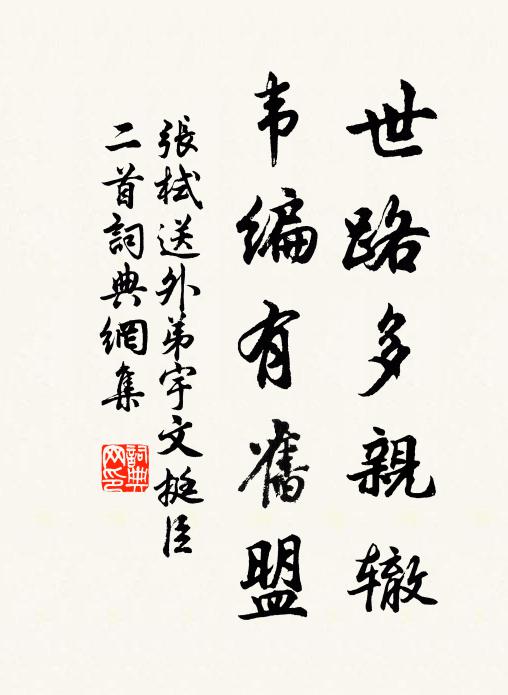 世路多親辙
韦编有舊盟
張栻送外弟宇文挺臣
二首詞典網集
詞典
网印